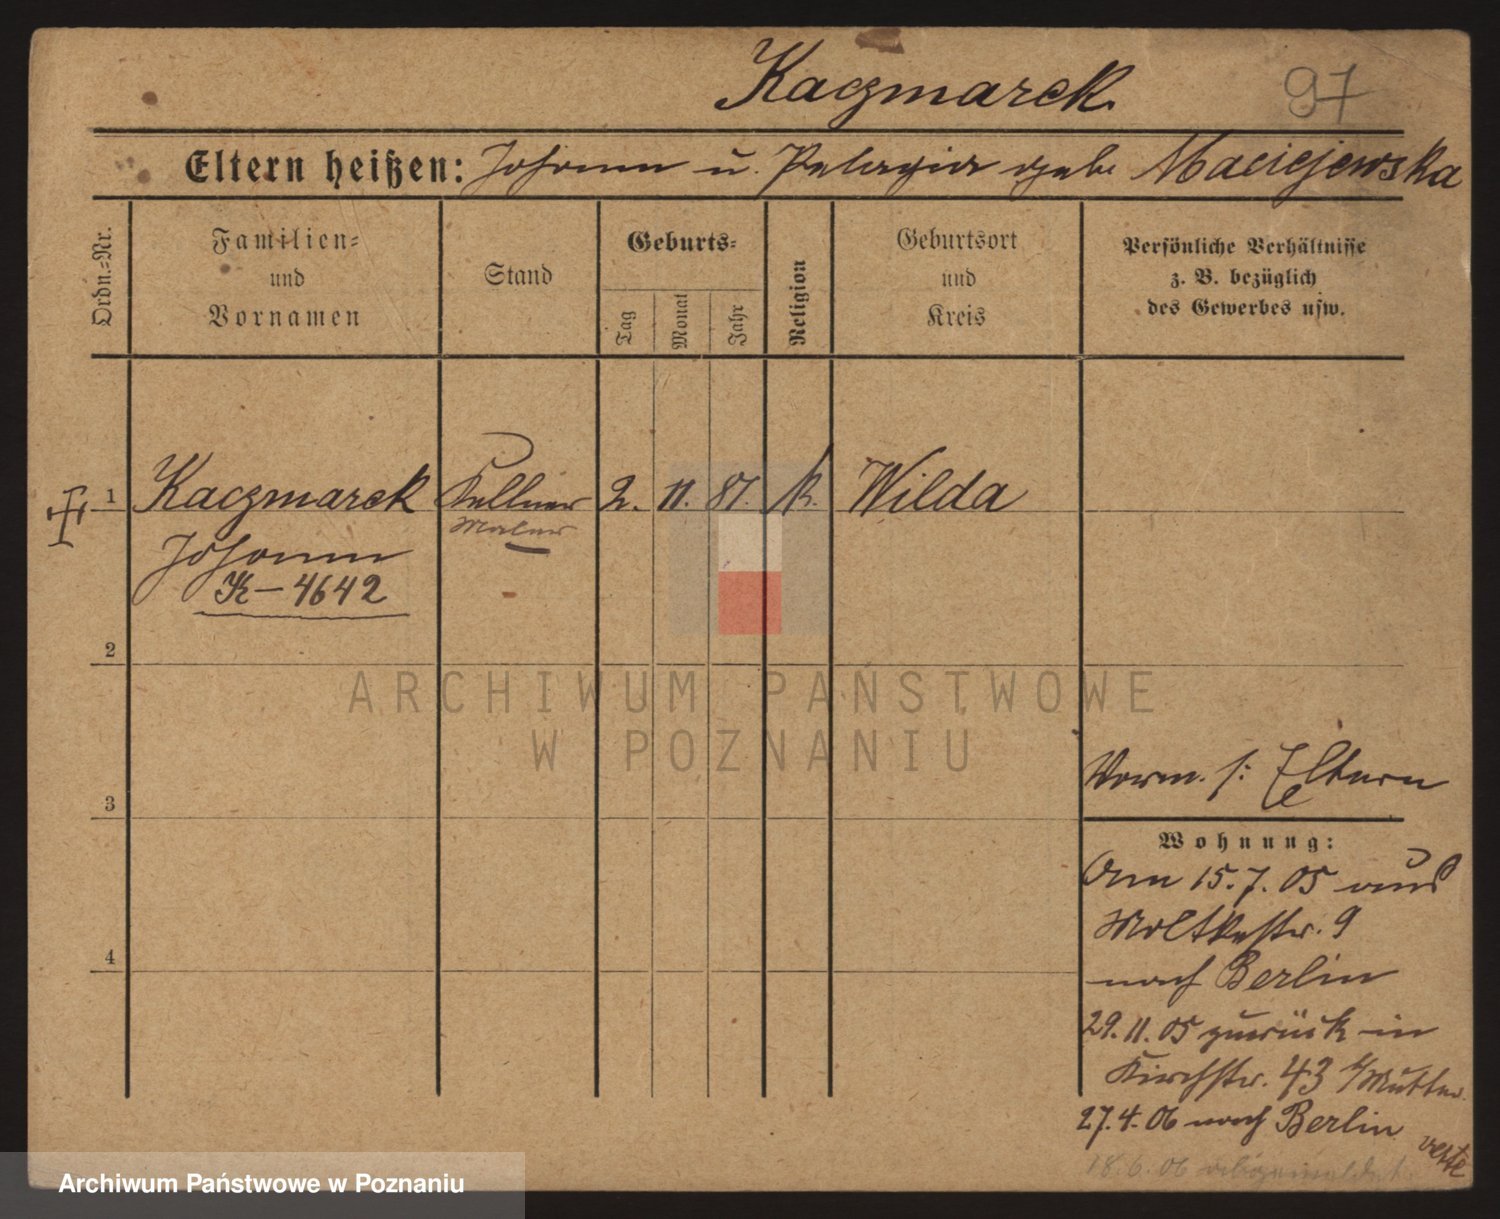 Kaczmarek 97
Eltern heißen: Johann u. Pelagia geb. Maciejewska
Ordn.-Nr.
Familien-
und
Vornamen
Stand
Geburts-
Tag
Monat
Jahr
Religion
Geburtsort
und
Kreis
Persönliche Verhältnisse
z. B. bezüglich
des Gewerbes usw.
1 Kaczmarek Kellner 2. 11. 87. k. Wilda
Maler
Johann
K-4642
2
ARCHIWUM PAŃSTWOWE
W POZNANIU
3
Vorm. s: Eltern
Wohnung:
Am 15.7.05 aus
Moltkestr. 9
nach Berlin
4
29.11.05 zurück in
Kirchstr. 43 b/Mutter
27.4.06 nach Berlin
18.6.06
verte
Archiwum Państwowe w Poznaniu